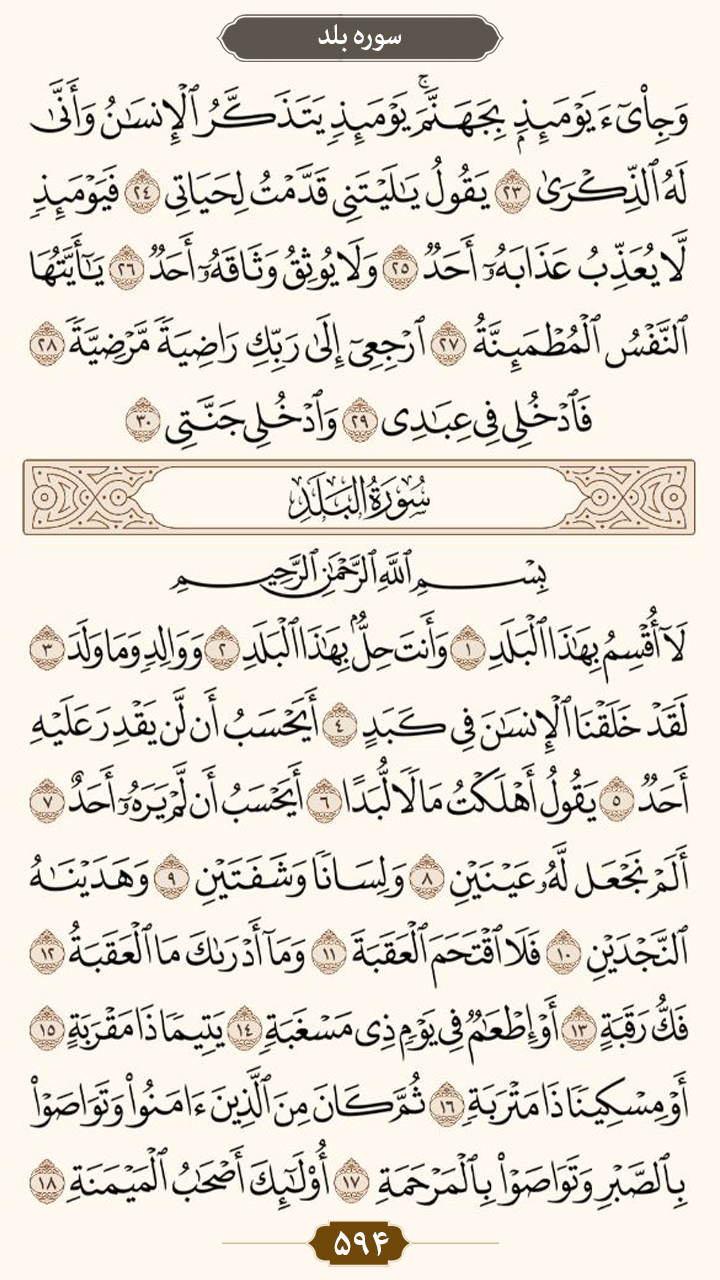 سوره بلد
وَجِا۟ىٓءَ يَوْمَئِذِۭ بِجَهَنَّمَۚ يَوْمَئِذٖ يَتَذَكَّرُ ٱلْإِنسَٰنُ وَأَنَّىٰ
لَهُ ٱلذِّكْرَىٰ ٢٣ يَقُولُ يَٰلَيْتَنِى قَدَّمْتُ لِحَيَاتِى ٢٤ فَيَوْمَئِذٖ
لَّا يُعَذِّبُ عَذَابَهُۥٓ أَحَدٞ ٢٥ وَلَا يُوثِقُ وَثَاقَهُۥٓ أَحَدٞ ٢٦ يَٰٓأَيَّتُهَا
ٱلنَّفْسُ ٱلْمُطْمَئِنَّةُ ٢٧ ٱرْجِعِىٓ إِلَىٰ رَبِّكِ رَاضِيَةٗ مَّرْضِيَّةٗ ٢٨
فَٱدْخُلِى فِى عِبَٰدِى ٢٩ وَٱدْخُلِى جَنَّتِى ٣٠
سُورَةُ الْبَلَدِ
بِسْمِ ٱللَّهِ ٱلرَّحْمَٰنِ ٱلرَّحِيمِ
لَآ أُقْسِمُ بِهَٰذَا ٱلْبَلَدِ ١ وَأَنتَ حِلُّۢ بِهَٰذَا ٱلْبَلَدِ ٢ وَوَالِدٖ وَمَا وَلَدَ ٣
لَقَدْ خَلَقْنَا ٱلْإِنسَٰنَ فِى كَبَدٍ ٤ أَيَحْسَبُ أَن لَّن يَقْدِرَ عَلَيْهِ
أَحَدٞ ٥ يَقُولُ أَهْلَكْتُ مَالٗا لُّبَدًا ٦ أَيَحْسَبُ أَن لَّمْ يَرَهُۥٓ أَحَدٌ ٧
أَلَمْ نَجْعَل لَّهُۥ عَيْنَيْنِ ٨ وَلِسَانٗا وَشَفَتَيْنِ ٩ وَهَدَيْنَٰهُ
ٱلنَّجْدَيْنِ ١٠ فَلَا ٱقْتَحَمَ ٱلْعَقَبَةَ ١١ وَمَآ أَدْرَىٰكَ مَا ٱلْعَقَبَةُ ١٢
فَكُّ رَقَبَةٍ ١٣ أَوْ إِطْعَٰمٞ فِى يَوْمٖ ذِى مَسْغَبَةٖ ١٤ يَتِيمٗا ذَا مَقْرَبَةٍ ١٥
أَوْ مِسْكِينٗا ذَا مَتْرَبَةٖ ١٦ ثُمَّ كَانَ مِنَ ٱلَّذِينَ ءَامَنُوا۟ وَتَوَاصَوْا۟
بِٱلصَّبْرِ وَتَوَاصَوْا۟ بِٱلْمَرْحَمَةِ ١٧ أُو۟لَٰٓئِكَ أَصْحَٰبُ ٱلْمَيْمَنَةِ ١٨
۵۹۴